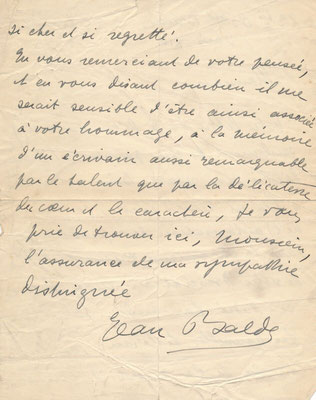 si cher et si regretté.
En vous remerciant de votre pensée,
et en vous disant combien il me
serait sensible d'être ainsi associé
à votre hommage, à la mémoire
d'un écrivain aussi remarquable
par le talent que par la délicatesse
du cœur et le caractère, je vous
prie de trouver ici, Monsieur,
l'assurance de ma sympathie
distinguée
Jean Balde